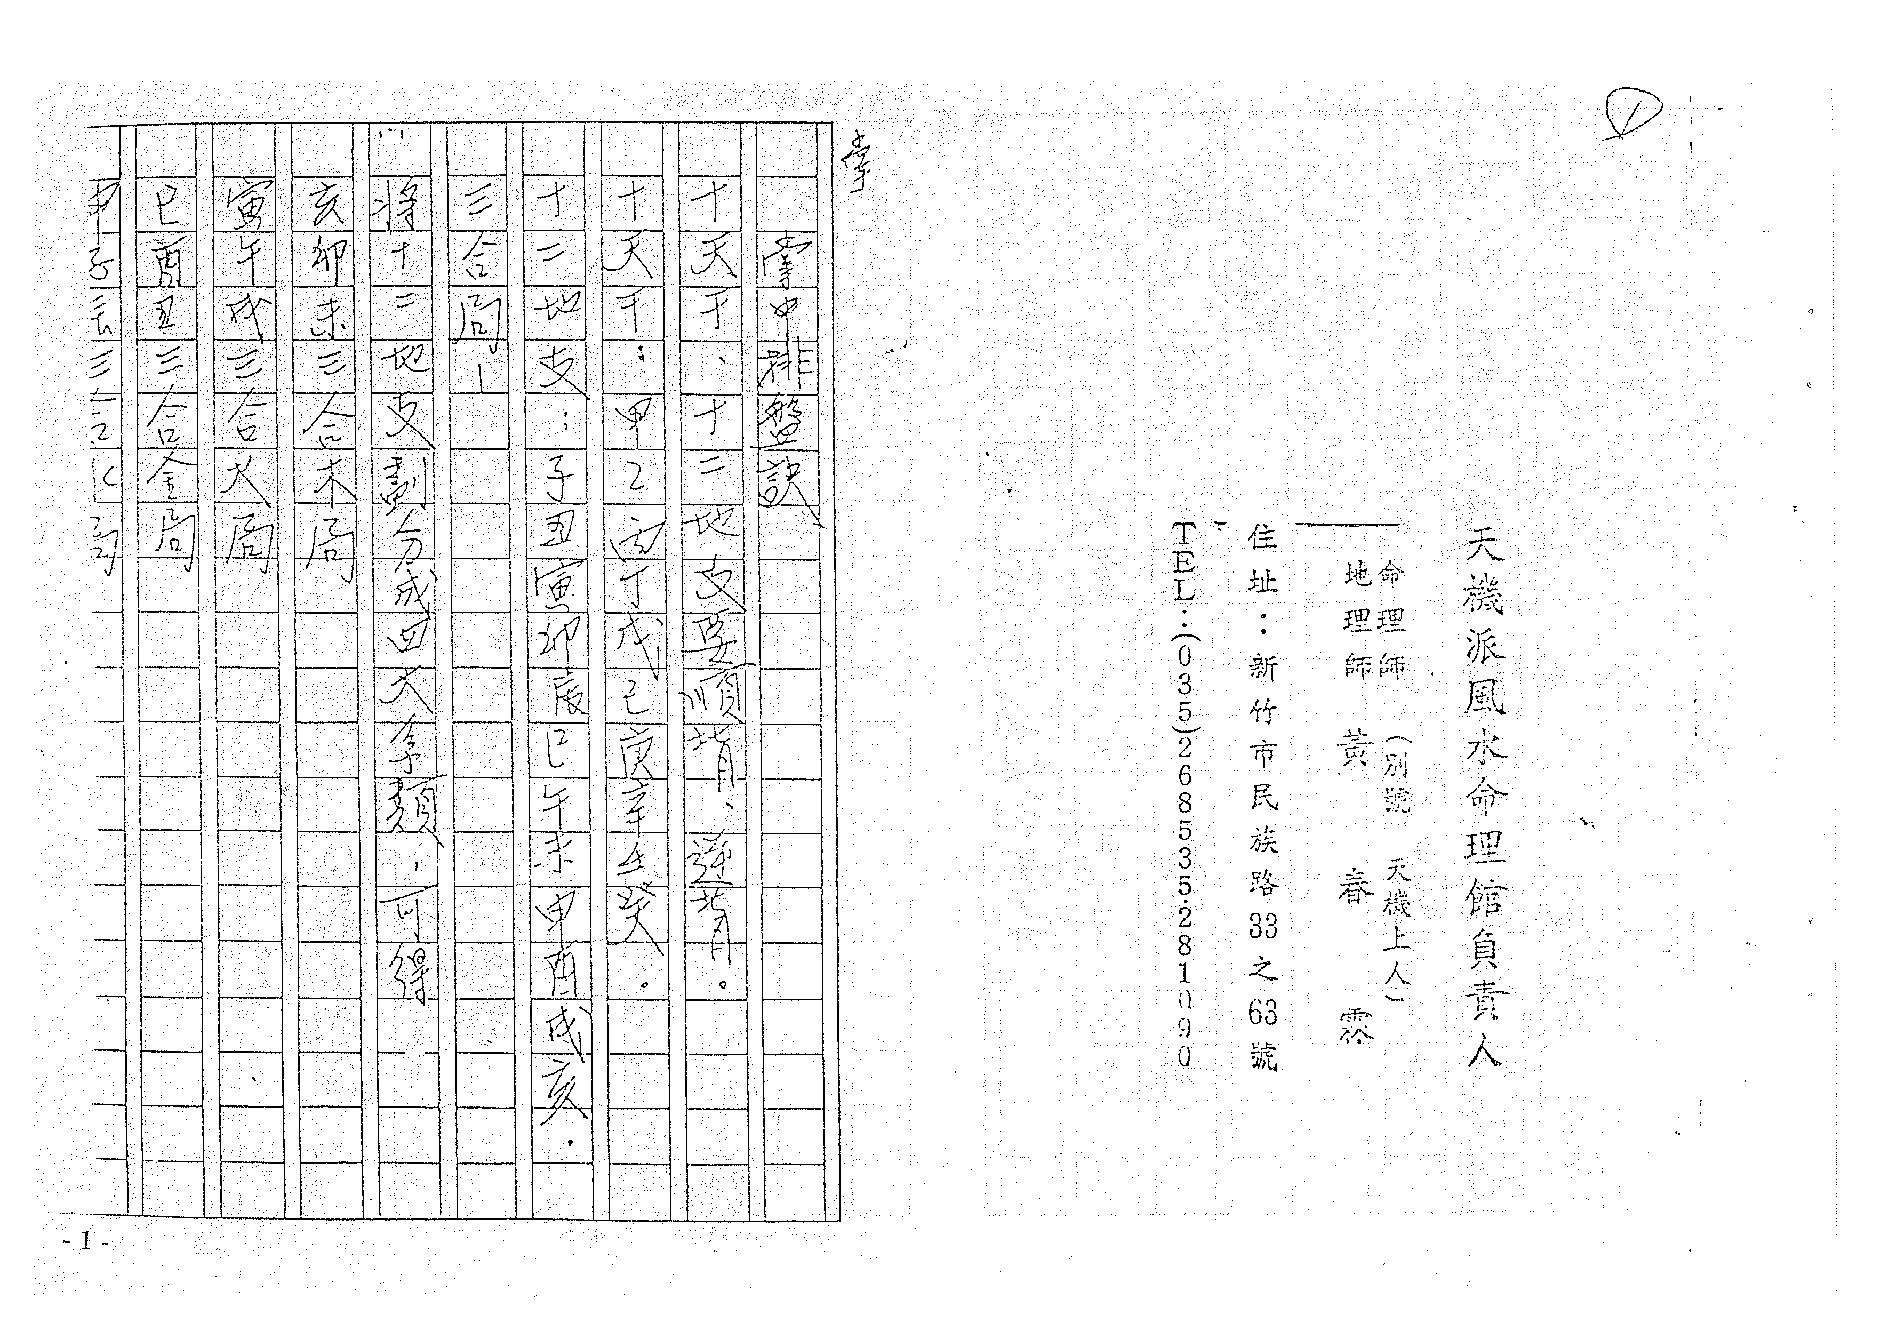 ①
天機派風水命理館負責人
命理師 (別號 天機上人)
地理師 黃春霖
住址：新竹市民族路33之63號
TEL：(035)268535.281090
掌
掌中排盤訣
十天干、十二地支要順背、逆背。
十天干：甲乙丙丁戊己庚辛壬癸。
十二地支：子丑寅卯辰巳午未申酉戌亥．
三合局—
將十二地支劃分成四大本類，可得
亥卯未三合木局
寅午戌三合火局
巳酉丑三合金局
申子辰三合水局
-1-